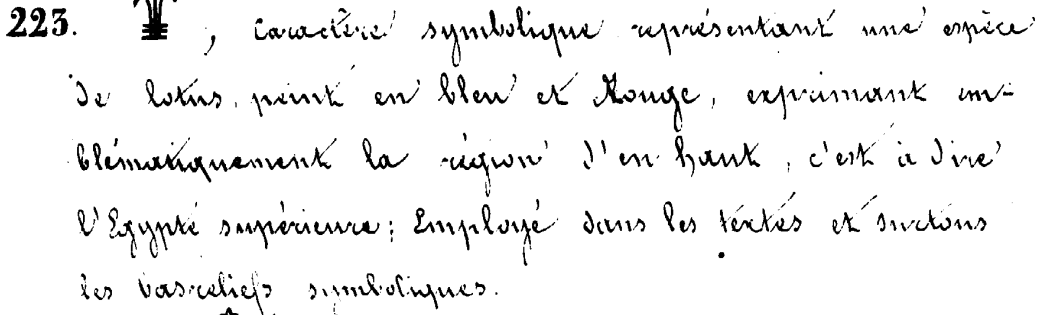 223. , Caractère symbolique représentant une espèce
de lotus, peint en bleu et Rouge, exprimant em-
blématiquement la région d'en haut, c'est à dire
l'Egypte supérieure; Employé dans les textes et surtous
les basreliefs symboliques.